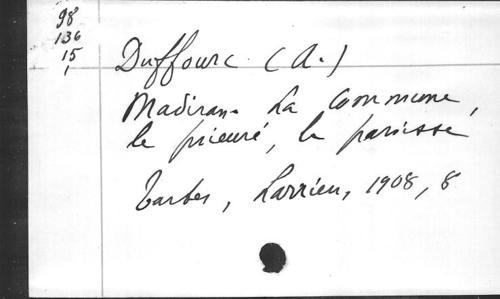 98
136
15
1
Duffourc (A.)
Madiran. La Commune,
le prieuré, la paroisse
Tarbes, Larrieu, 1908, 8